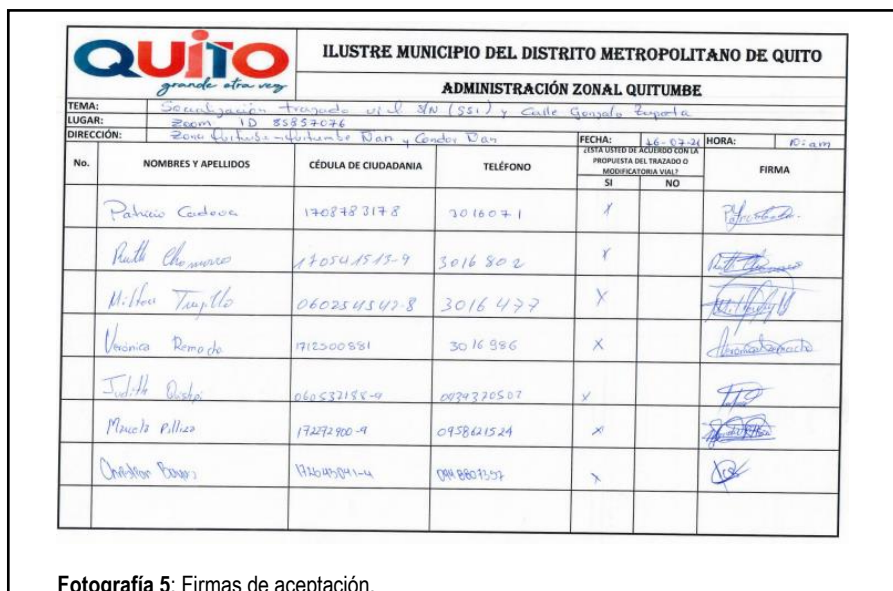 QUITO
grande otra vez
ILUSTRE MUNICIPIO DEL DISTRITO METROPOLITANO DE QUITO
ADMINISTRACIÓN ZONAL QUITUMBE
TEMA: Socialización trazado vial S/N (SS1) y Calle Gonzalo
LUGAR: Zoom ID 85857076
DIRECCIÓN: Zona Quitumbe - Quitumbe Ñan y Condor Ñan FECHA: 16-07-21 HORA: 10:am
No. NOMBRES Y APELLIDOS CÉDULA DE CIUDADANIA TELÉFONO ¿ESTA USTED DE ACUERDO CON LA PROPUESTA DEL TRAZADO O MODIFICATORIA VIAL? SI NO FIRMA
Patricio Cordova 1708783178 3016071 X
Ruth Chamorro 170541515-9 3016802 X
Milton Trujillo 060254542-8 3016477 X
Verónica Remache 1712500881 3016986 X
Judith 060532188-9 0939320502 X
Pilliza 172292900-9 0958621524 X
Christian X
Fotografía 5: Firmas de aceptación.